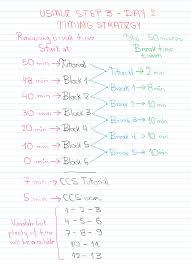 USMLE STEP 3 - DAY 2
TIMING STRATEGY
Remaining break time Total 50 minutes
Start at: Break time
50 min → Tutorial
Tutorial → 2 min
48 min → Block 1
Block 1 → 8 min
40 min → Block 2
Block 2 →
Block 3 →
30 min → Block 4
Block 4 → 10 min
20 min → Block 4
Block 5 → 10 min
10 min → Block 5
0 min → Block 6
7 min → CCS Tutorial
5 min → CCS cases
1 - 2 - 3
Variable but 4 - 5 - 6
plenty of time 7 - 8 - 9
will be available 10 - 11
12 - 13